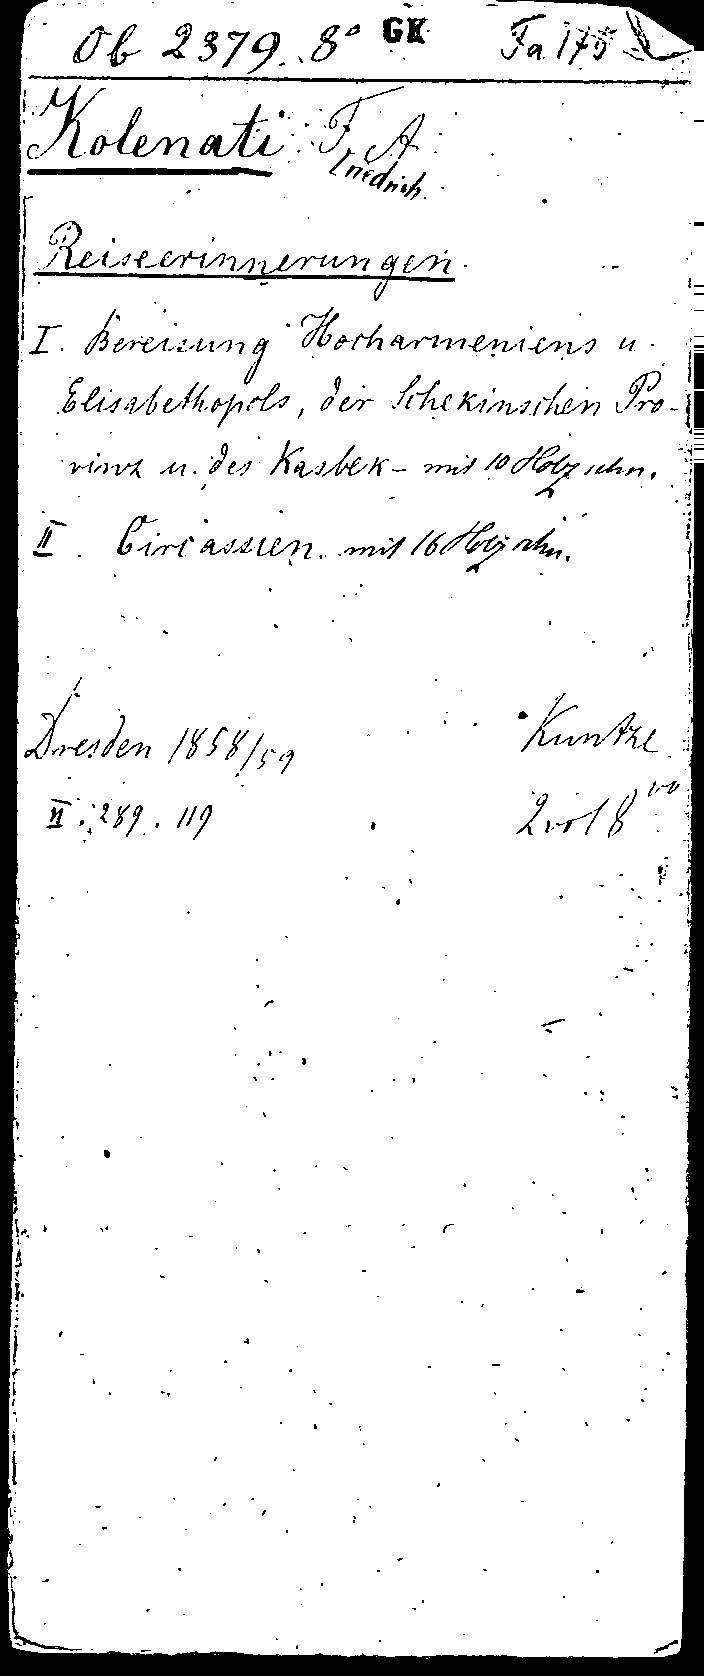 Ob 2379. 8° GK Fa 175
Kolenati F A
Friedrich
Reiseerinnerungen.
I. Bereisung Hocharmeniens u.
Elisabethopols, der Schekinschen Pro-
vinz u. des Kasbek – mit 10 Holzschn.
II. Circassien. mit 16 Holzschn.
Dresden 1858/59 Kuntze
II. 289. 119 2 vol 8vo